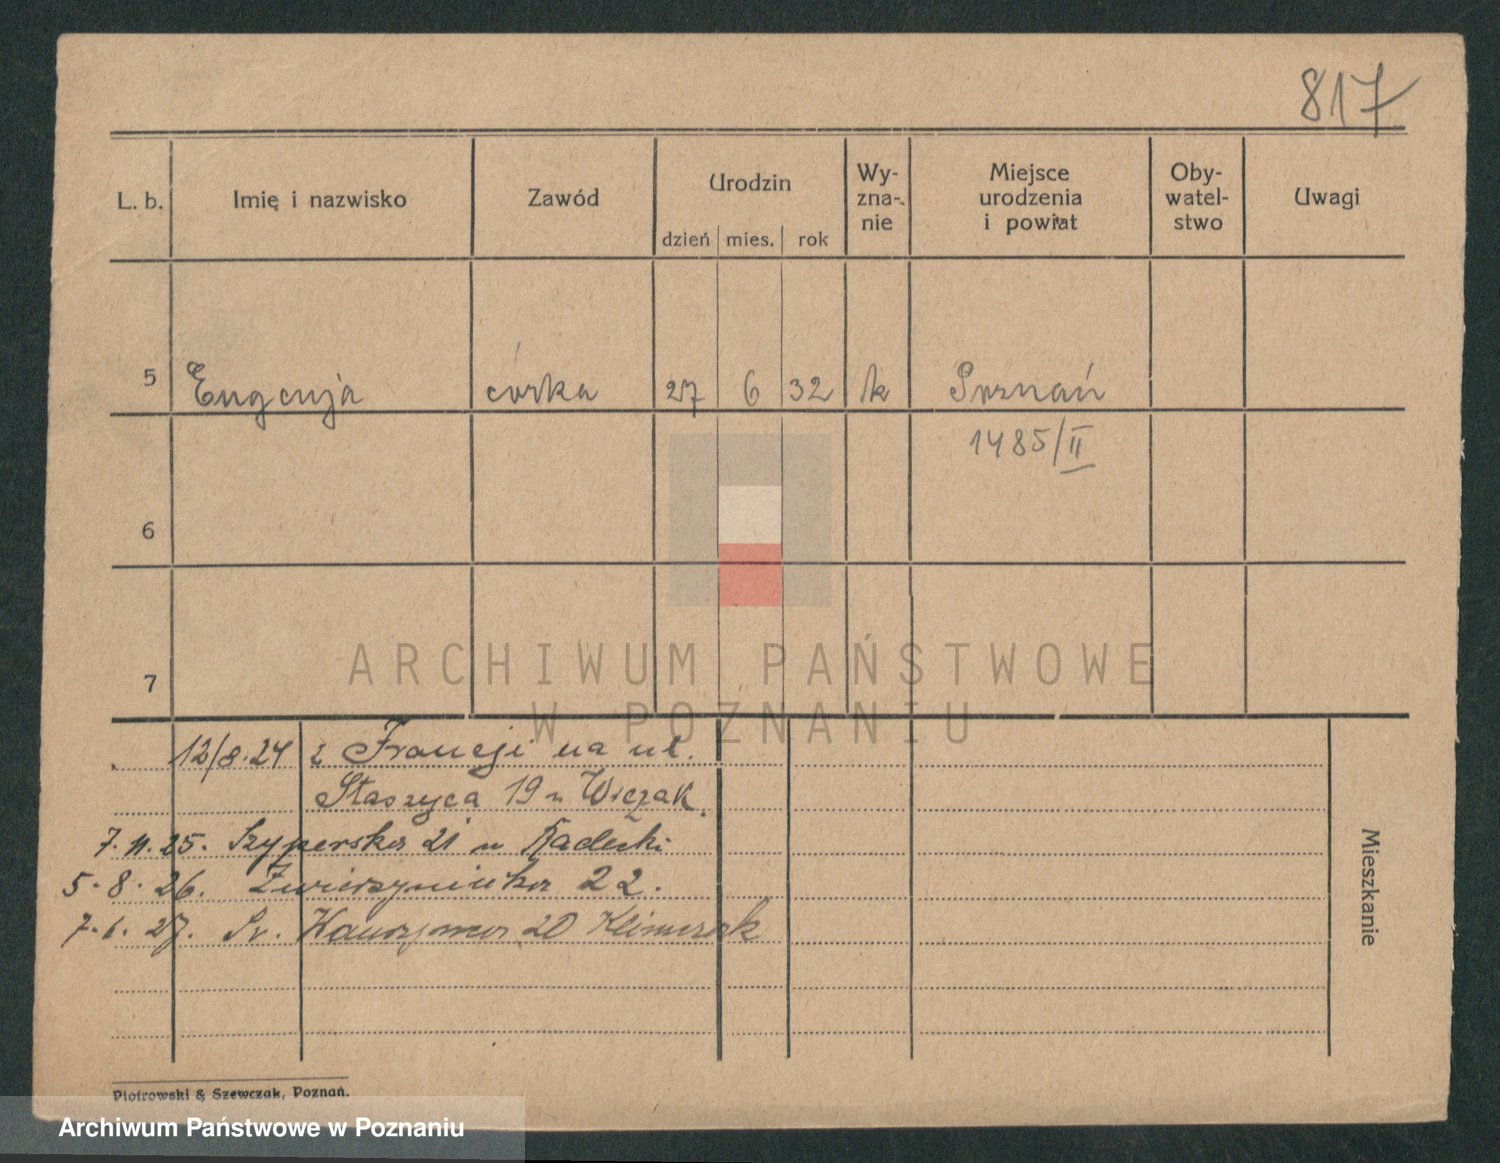 817
L. b. Imię i nazwisko Zawód Urodzin dzień mies. rok Wy-zna-nie Miejsce urodzenia i powiat Oby-watel-stwo Uwagi
5 Eugenja córka 27 6 32 k Poznań
1485/II
6
7
ARCHIWUM PAŃSTWOWE
W POZNANIU
12/8.24 z Francji na ul.
Staszyca 19 u Wiczak.
7.11.25. Szyperska 21 u Radecki
5.8.26. Zwierzyniecka 22.
7.1.27. Św. 20 Klimczak
Mieszkanie
Piotrowski & Szewczak, Poznań.
Archiwum Państwowe w Poznaniu